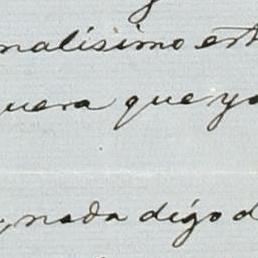 malísimo est
uera que yo
, nada digo d